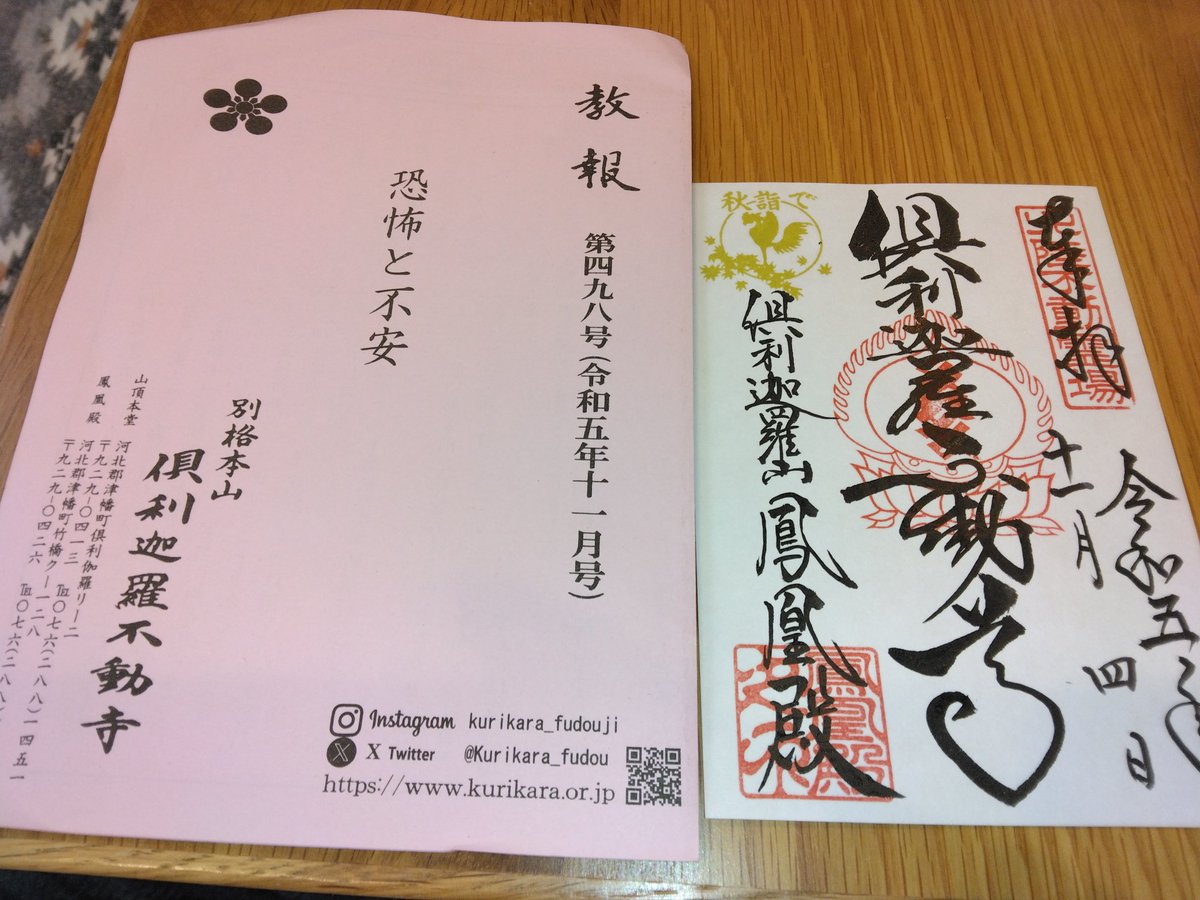 教報 第四九八号(令和五年十一月号)
恐怖と不安
別格本山
倶利迦羅不動寺
山頂本堂 河北郡津幡町倶利伽羅リ一二
〒九二九-〇四一三 ℡〇七六(二八八)一四五一
鳳凰殿 河北郡津幡町竹橋ク一二八
〒九二九-〇四二六 ℡〇七六(二八八)
Instagram kurikara_fudouji
X Twitter @Kurikara_fudou
https://www.kurikara.or.jp
奉拝
令和五年
十一月
四日
倶利迦羅不動尊
秋詣で
倶利迦羅山 鳳凰殿
鳳凰殿